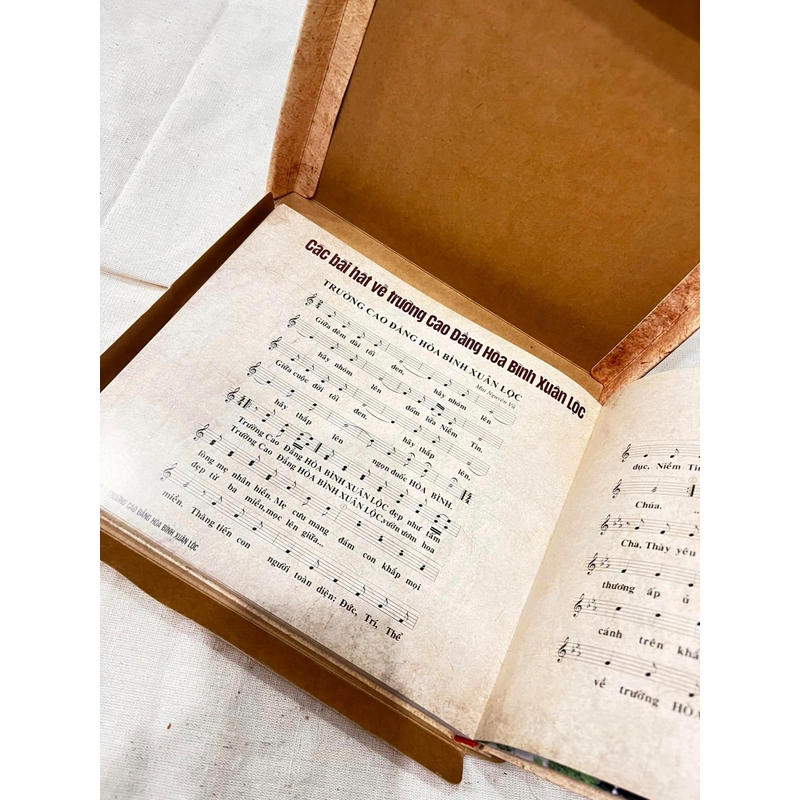 Các bài hát về trường Cao Đẳng Hòa Bình Xuân Lộc
TRƯỜNG CAO ĐẲNG HÒA BÌNH XUÂN LỘC
Mai Nguyên Vũ
Giữa đêm dài tối đen, hãy nhóm lên
hãy nhóm lên đốm lửa Niềm Tin.
Giữa cuộc đời tối đen, hãy thắp lên,
hãy thắp lên ngọn đuốc HÒA BÌNH.
Trường Cao Đẳng HÒA BÌNH XUÂN LỘC đẹp như tấm
Trường Cao Đẳng HÒA BÌNH XUÂN LỘC, vườn ươm hoa
lòng mẹ nhân hiền. Mẹ cưu mang đám con khắp mọi
đẹp từ ba miền, mọc lên giữa...
miền. Thăng tiến con người toàn diện: Đức, Trí, Thể
TRƯỜNG CAO ĐẲNG HÒA BÌNH XUÂN LỘC
dục, Niềm Tin
Chúa. ..
Cha, Thầy yêu
thương ấp ủ
cánh trên khắ
về trường HÒA